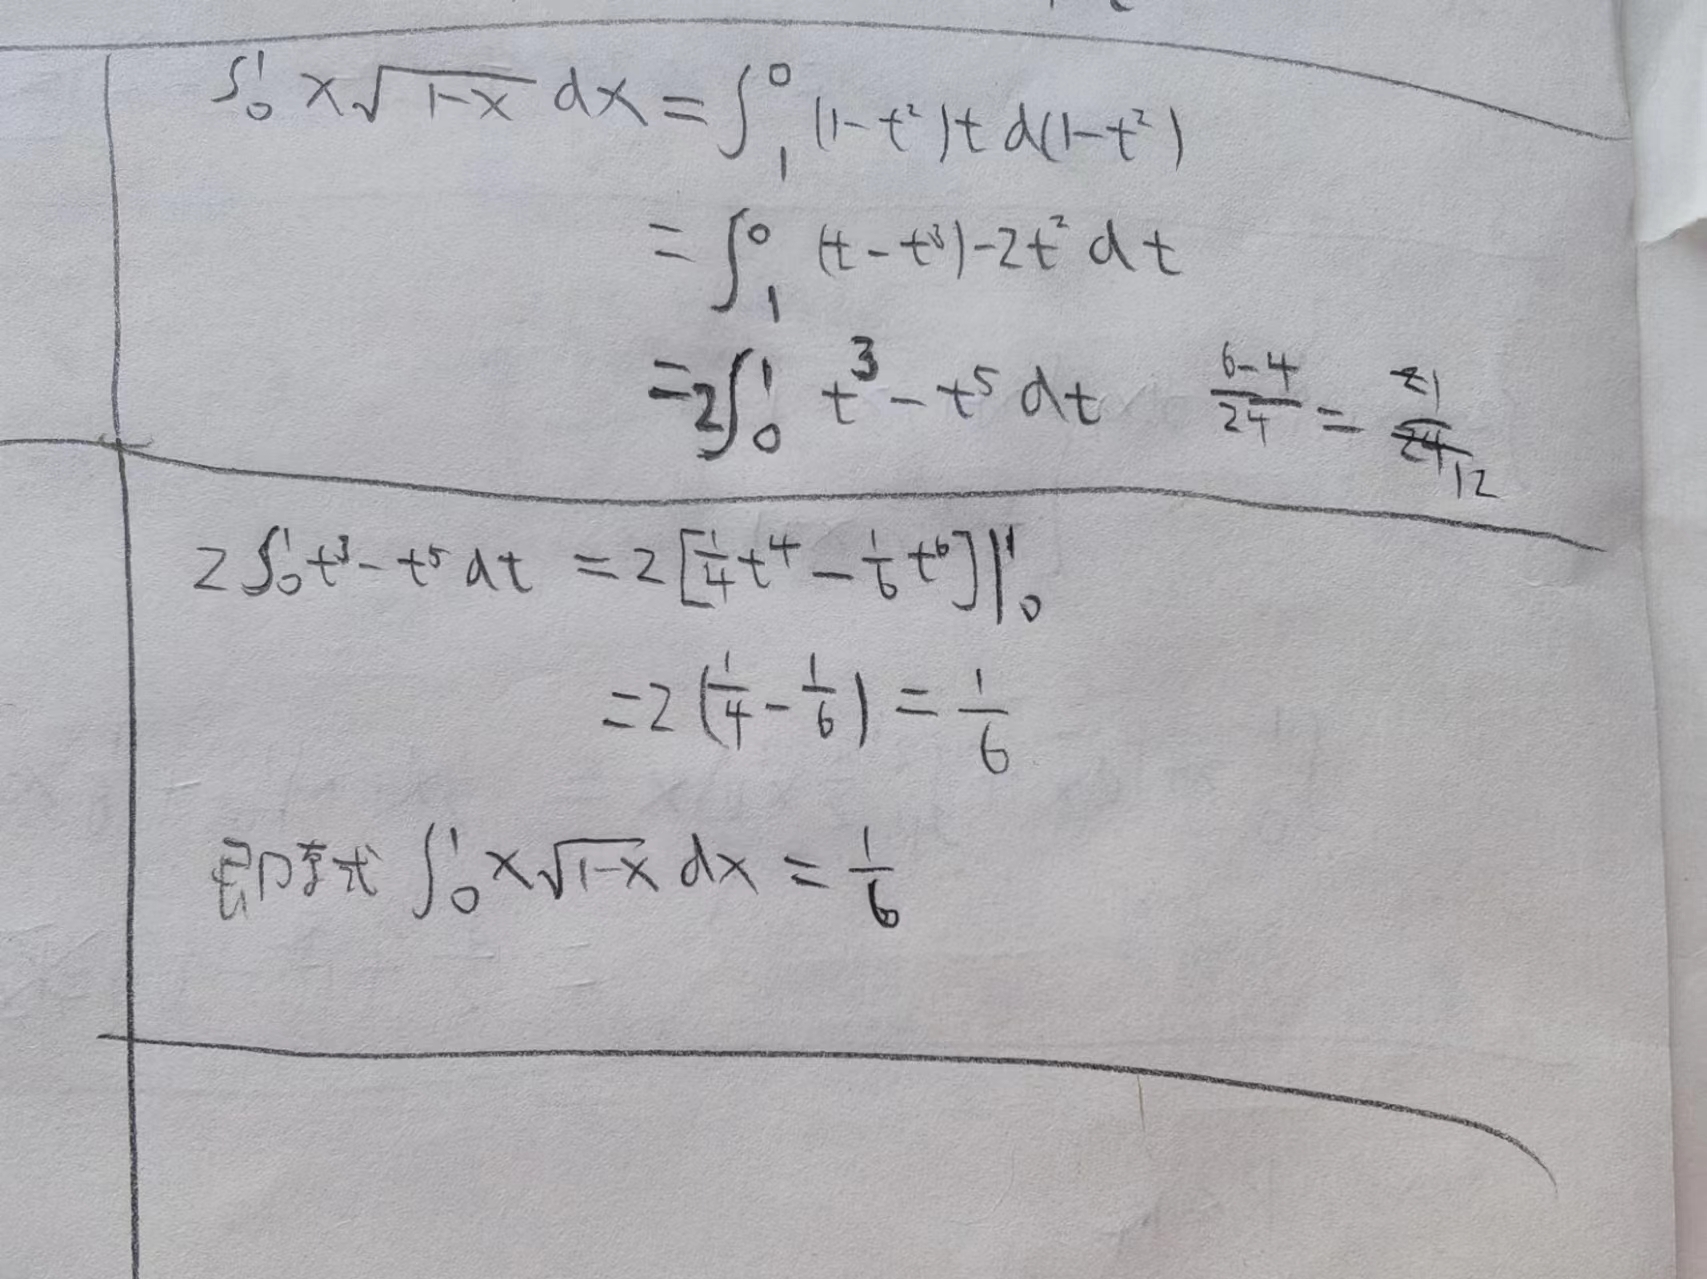 ∫₀¹ x√(1-x) dx = ∫₁⁰ (1-t²)t d(1-t²)
= ∫₁⁰ (t-t³)-2t² dt
= 2∫₀¹ t³ - t⁵ dt
(6-4)/24 = 1/12
2∫₀¹ t³ - t⁵ dt = 2[¼t⁴ - ⅙t⁶]|₀¹
= 2(¼ - ⅙) = ⅙
即原式 ∫₀¹ x√(1-x) dx = ⅙